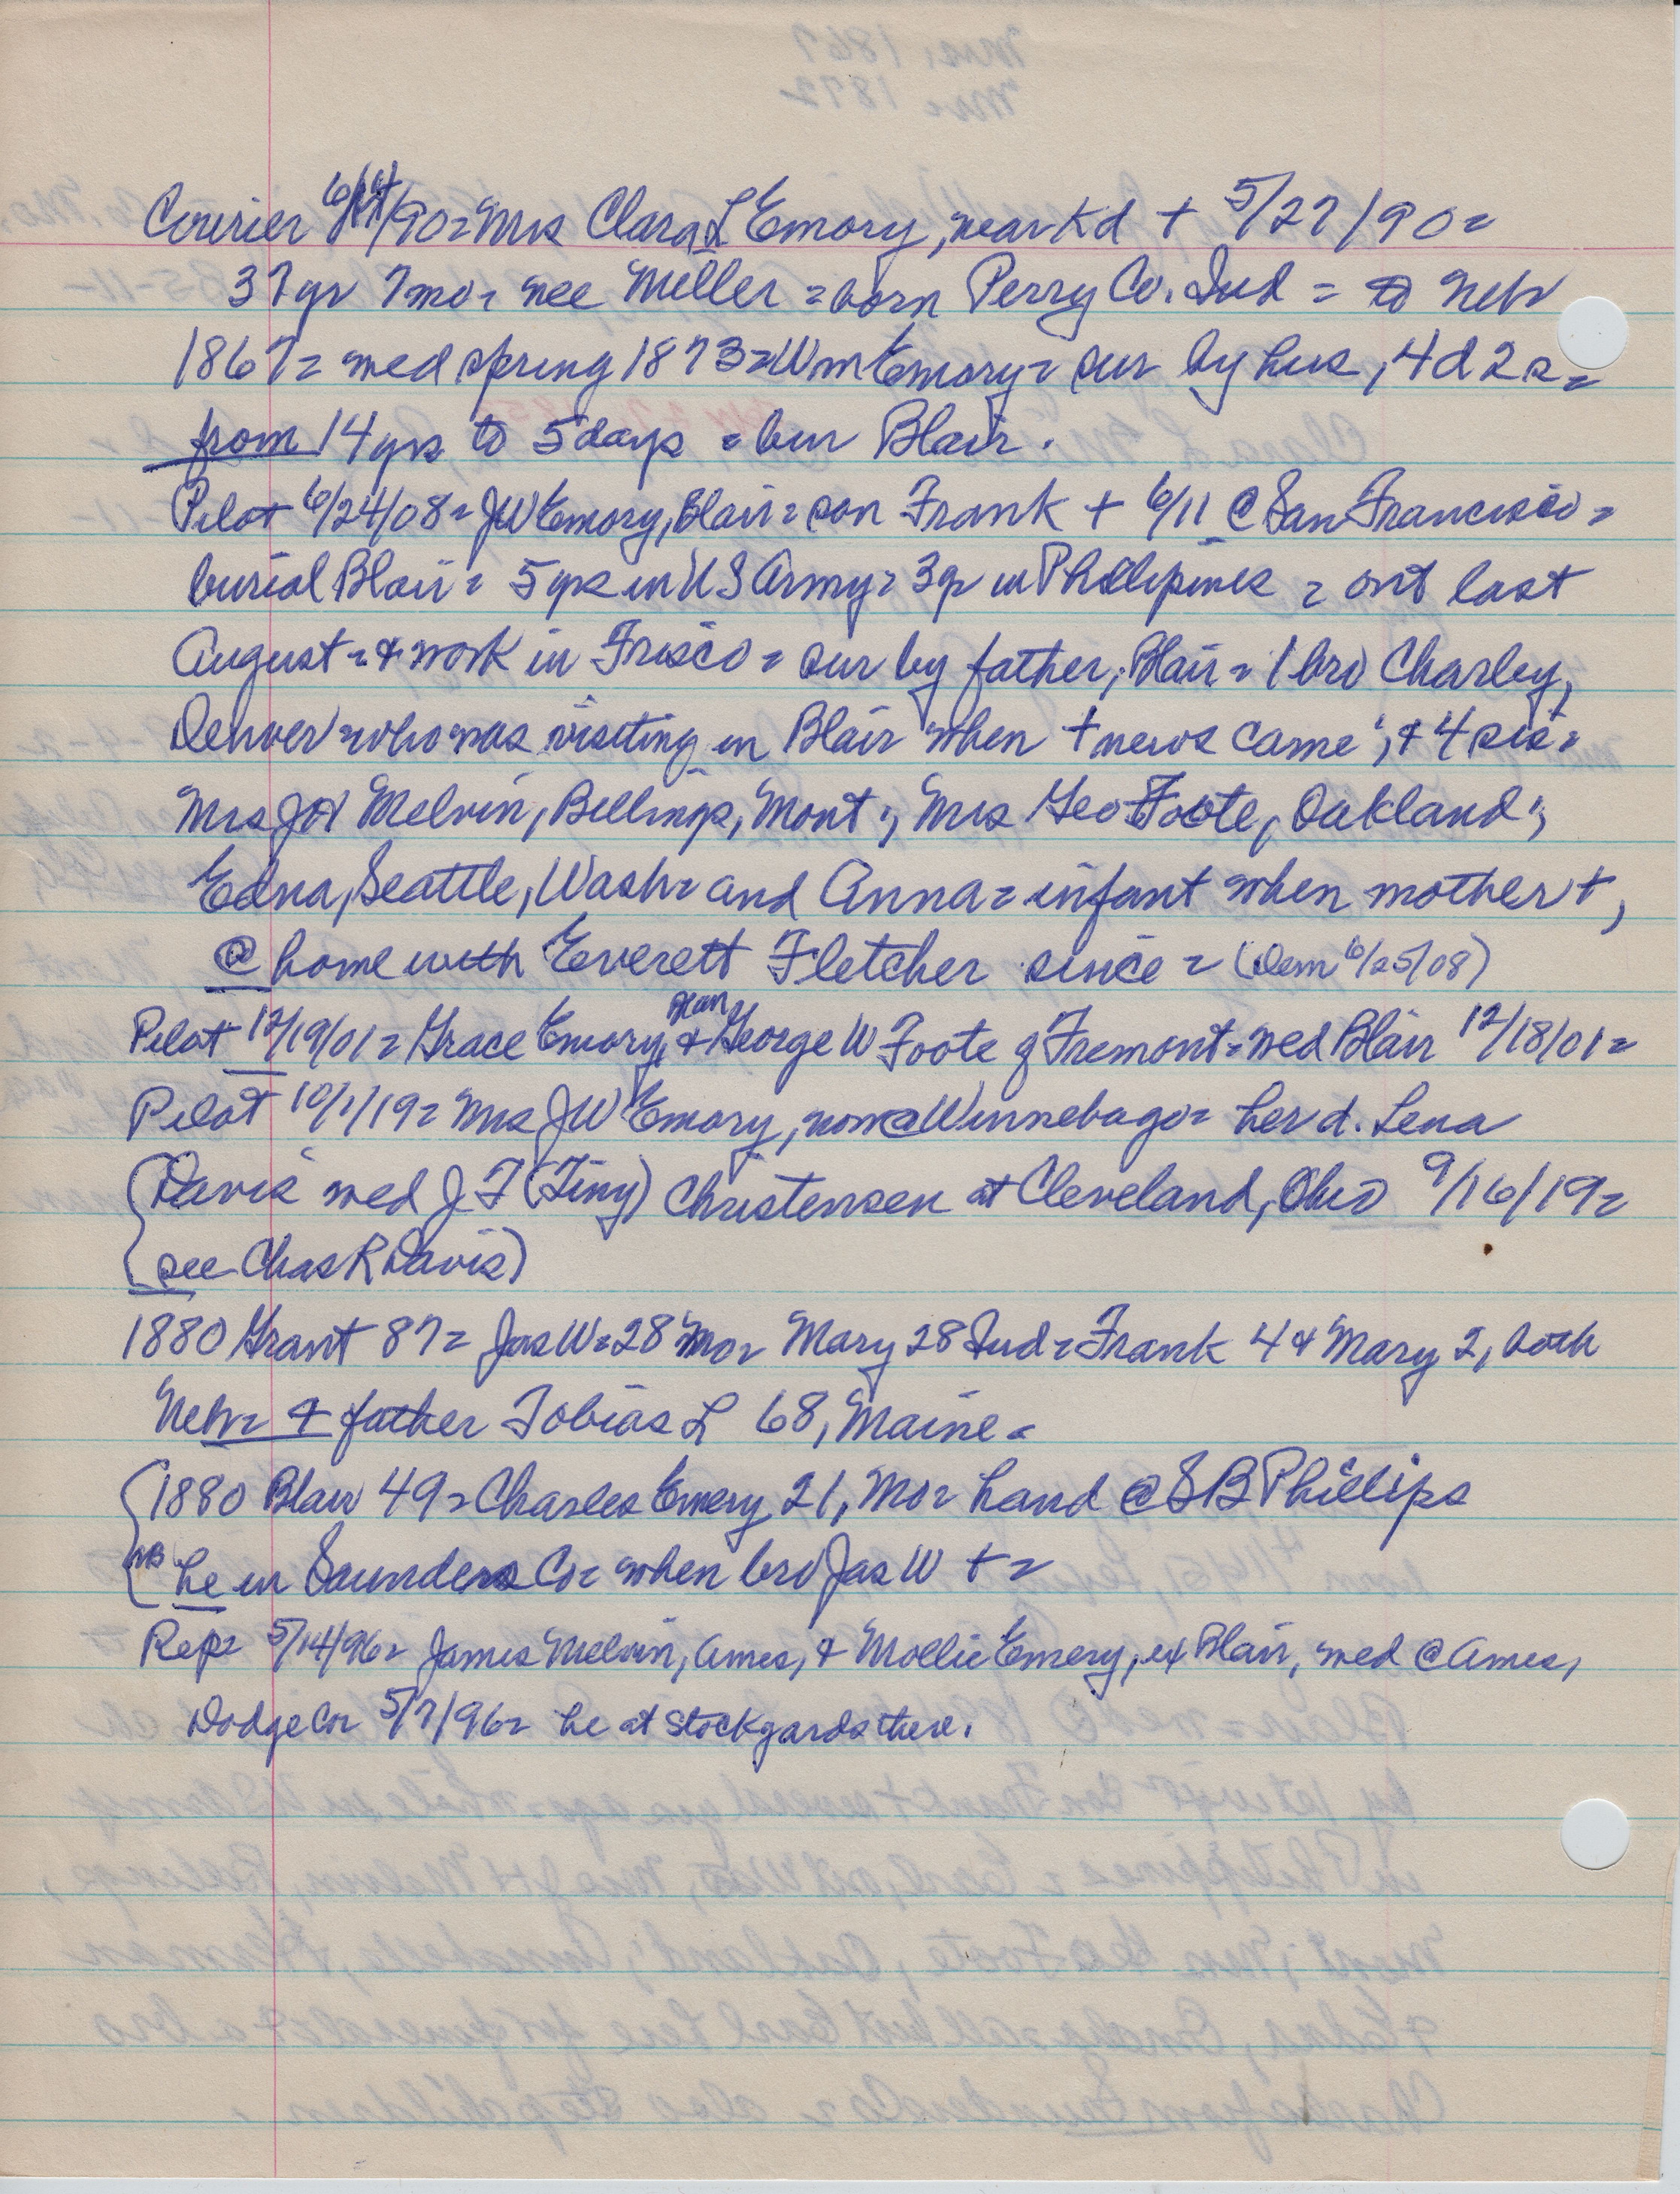 Courier 6/14/90 = Mrs Clara L Emory, near Kd + 5/27/90 =
37 yr 7 mo = nee Miller = born Perry Co. Ind = to Neb
1867 = med spring 1873 = Wm Emory = sur by hus, 4 d 2 s =
from 14 yrs to 5 days = bur Blair.
Pilot 6/24/08 = JW Emory, Blair = son Frank + 6/11 @ San Francisco =
burial Blair = 5 yrs in US Army = 3 yr in Phillipines = out last
August = & work in Frisco = sur by father, Blair = 1 bro Charley,
Denver who was visiting in Blair when + news came; & 4 sis =
Mrs JH Melvin, Billings, Mont; Mrs Geo Foote, Oakland;
Edna, Seattle, Wash = and Anna = infant when mother +,
@ home with Everett Fletcher since = (Dem 6/25/08)
Pilot 12/19/01 = Grace Emory, Blair, & George W Foote of Fremont = med Blair 12/18/01 =
Pilot 10/1/19 = Mrs JW Emory, now @ Winnebago = her d. Lena
Davis med J F (Tiny) Christensen at Cleveland, Ohio 9/16/19 =
see Chas R Davis)
1880 Grant 87 = Jas W = 28 Mo = Mary 28 Ind = Frank 4 & Mary 2, both
Neb = & father Tobias L 68, Maine =
1880 Blair 49 = Charles Emery 21, Mo = hand @ SB Phillips
NB he in Saunders Co = when bro Jas W + =
Rep = 5/14/96 = James Melvin, Ames, & Mollie Emery, ex Blair, med @ Ames,
Dodge Co = 5/7/96 = he at stockyards there.